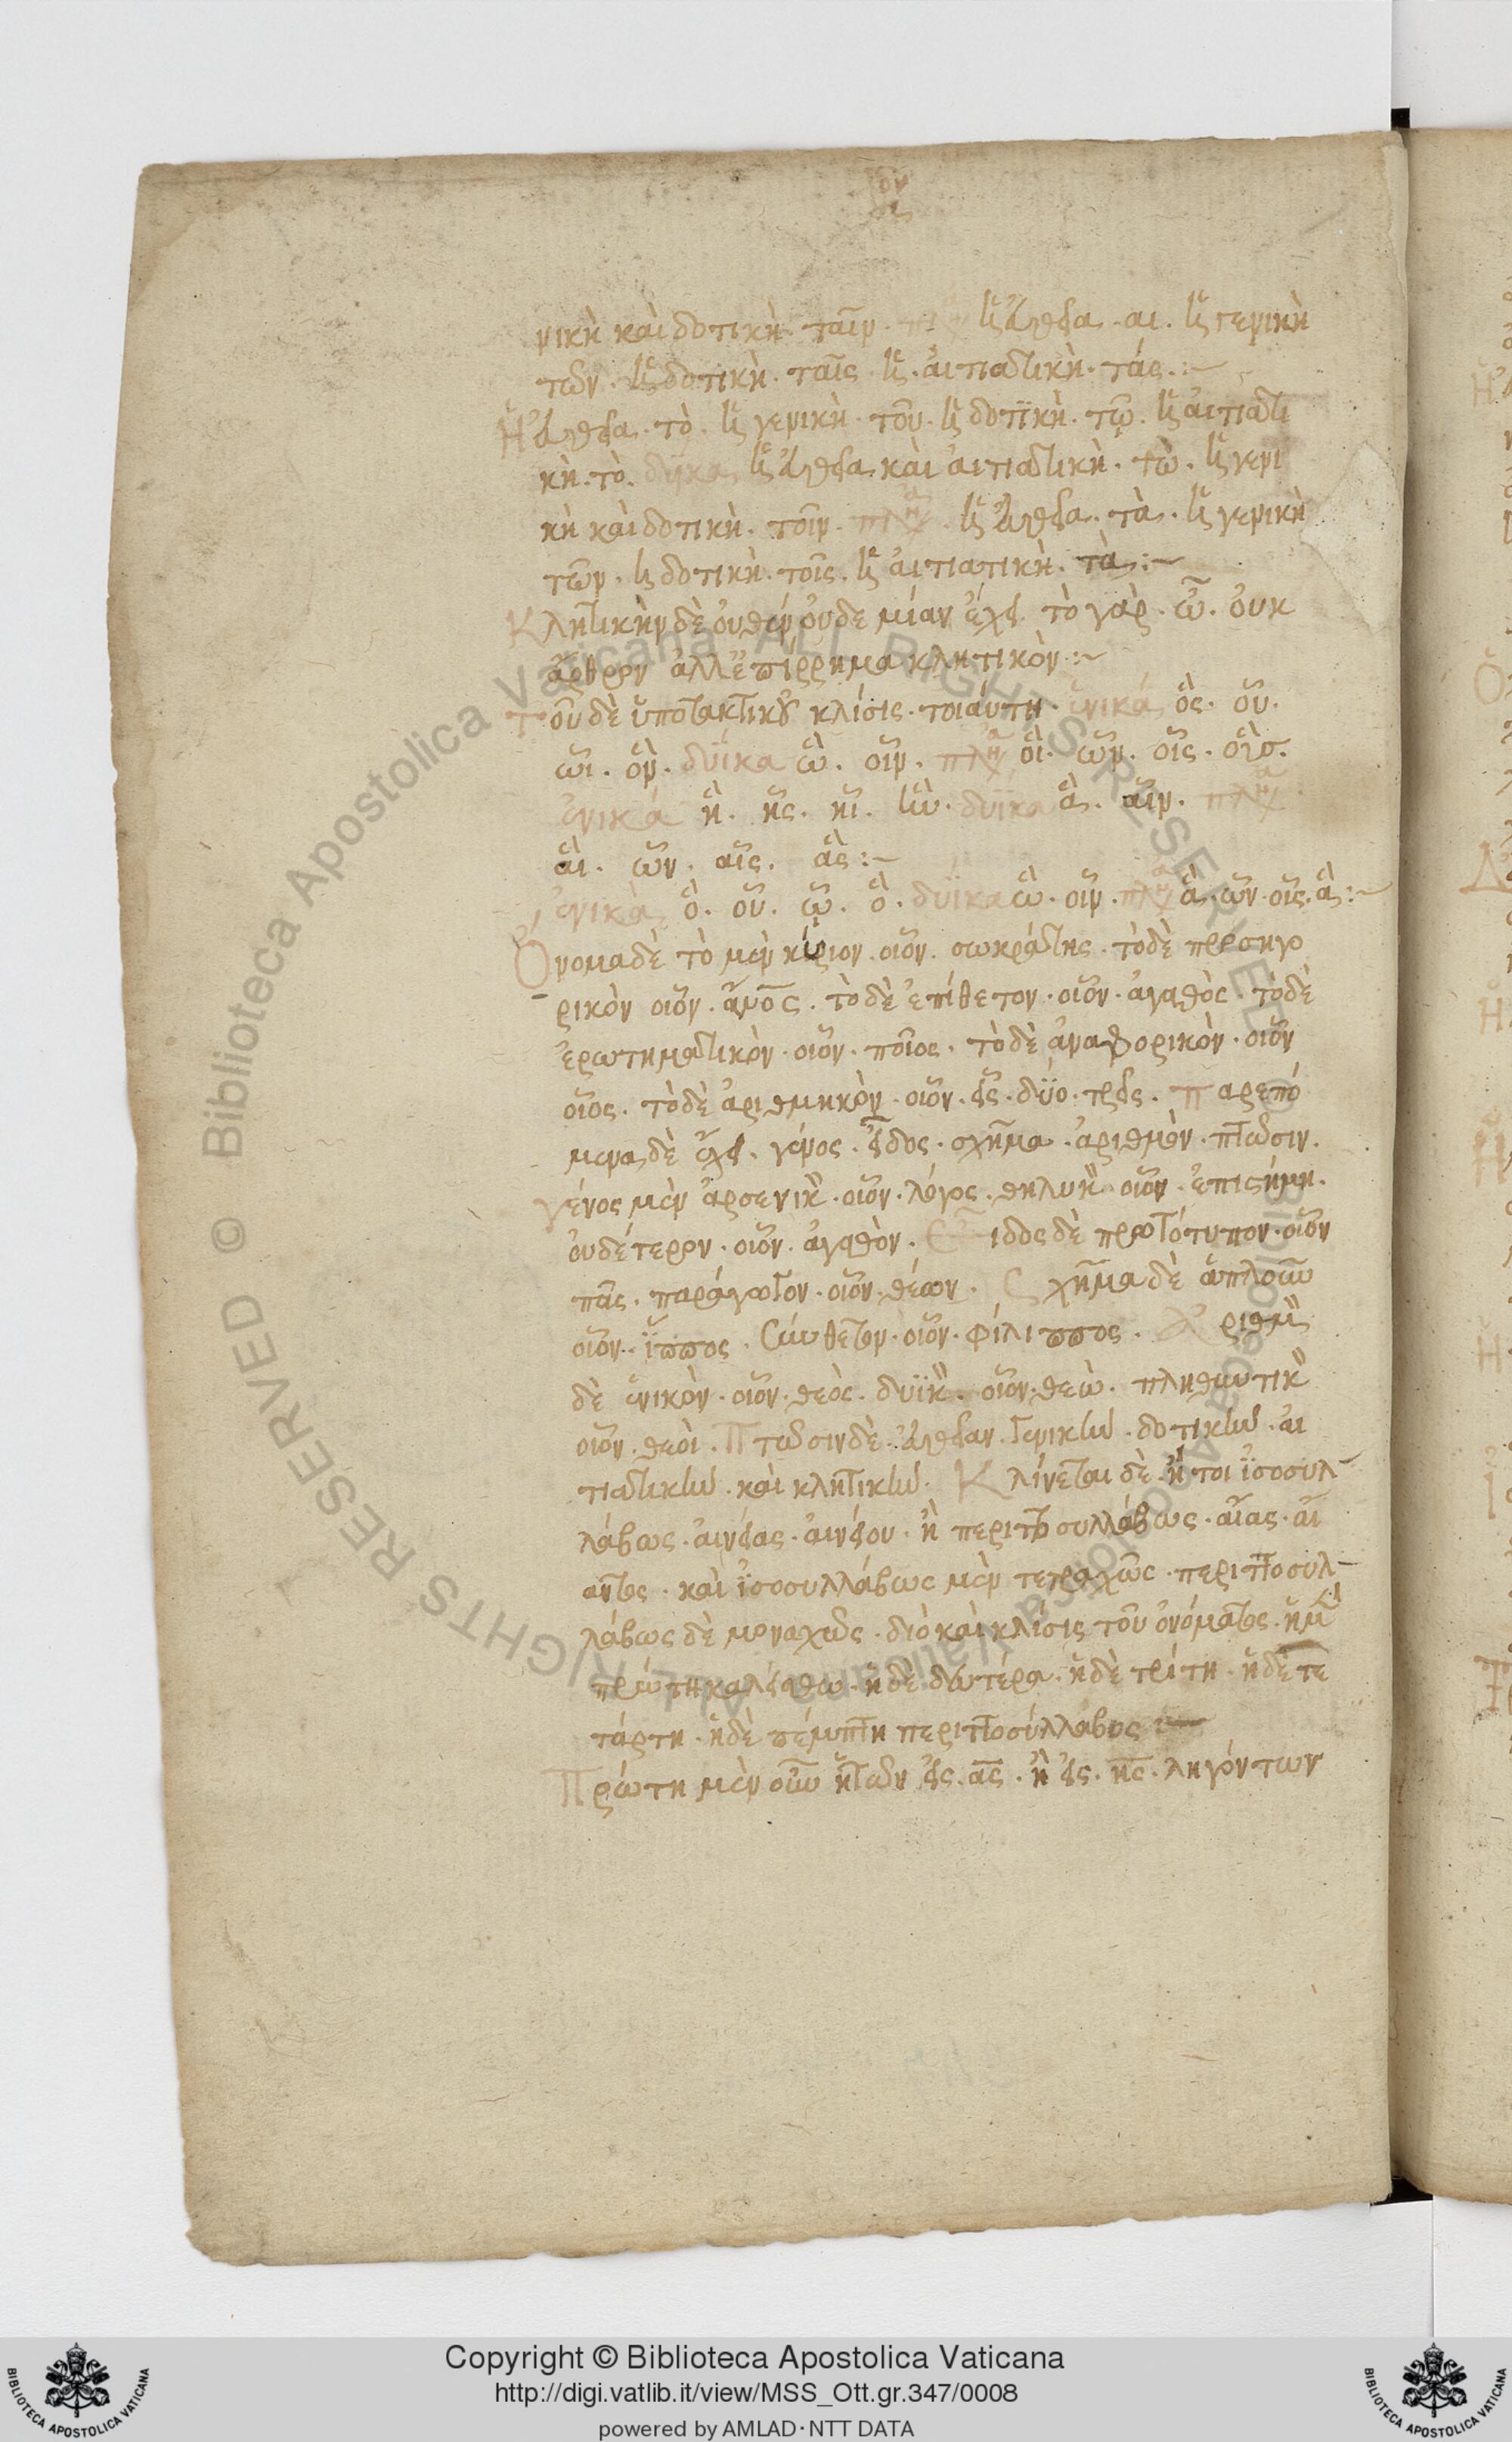 νικὴ καὶ δοτικὴ· ταῖν· ἡ ἐυθεῖα· αι· ἡ γενικὴ
τῶν· ἡ δοτικὴ· ταῖς· ἡ ἀιτιατικὴ· τάς:~
Ἡ ἐυθεῖα· τὸ· ἡ γενικὴ· τοῦ· ἡ δοτϊκὴ· τῷ· ἡ ἀιτιατι
κὴ· τὸ· δυϊκα ἡ ἐυθεῖα καὶ ἀιτιατικὴ· τὼ· ἡ γενι
κὴ καὶ δοτικὴ· τοῖν· πλη ἡ ἐυθεῖα· τὰ· ἡ γενικὴ
τῶν· ἡ δοτικὴ· τοῖς· ἡ ἀιτιατικὴ· τὰ:~
Κλητικὴν δὲ ὀυθὲν ὀυδε μίαν ἔχει· τὸ γὰρ· ὦ· ὀυκ
ἄρθρον ἀλλ' ἐπίρρημα κλητικὸν:~
Τοῦ δὲ ὑποτακτικοῦ κλίσις· τοιάυτη· ἑνικά ὃς· οὗ·
ὧι· ὃν· δυϊκα ὣ· οἷν· πλη οἳ· ὧν· οἷς· οὓσ·
ἑνικά ἣ· ἧς· ἧι· ἣν· δυϊκα ἃ· αἷν· πλη
ἃι· ὧν· αἷς· ἃς:~
ἑνικὰ ὃ· οὗ· ᾧ· ὃ· δυϊκα ὣ· οἷν· πλη ἃ· ὧν· οἷς· ἃ:~
Ὄνομα δὲ τὸ μὲν κύριον· οἷον· σωκράτης· τὸ δὲ προσηγο
ρικὸν οἷον· ἄν̅ο̅ς· τὸ δὲ ἐπίθετον· οἷον· ἀγαθὸς· τὸ δὲ
ἐρωτηματικὸν· οἷον· ποῖος· τὸ δὲ ἀναφορικὸν· οἷον
οἷος· τὸ δὲ ἀριθμηκὸν· οἷον· εἷς· δύο· τρεῖς· Παρεπό
μενα δὲ ἔχει· γένος· εἶδος· σχῆμα· ἀριθμὸν· πτῶσιν·
γένος μὲν ἀρσενικὸν· οἷον· λόγος· θηλυκὸν οἷον· ἐπιστήμη·
ὀυδέτερον· οἷον· ἀγαθὸν· Εἶδος δὲ πρωτότυπον· οἷον
πᾶς· παράγωτον· οἷον· θέων· Σχῆμα δὲ ἁπλοῦν
οἷον· ἵππος· Σύνθετον· οἷον· φίλιππος· Ἀριθμὸν
δὲ ἑνικὸν· οἷον· θεὸς· δυϊκὸν· οἷον· θεὼ· πληθυντικὸν
οἷον· θεὸι· Πτῶσιν δὲ· ἐυθεῖαν· Γενικὴν· δοτικὴν· ἀι
τιατικὴν· καὶ κλητικὴν· Κλίνεται δὲ· ἤτοι ἰσοσυλ
λάβως· ἀινείας· ἀινείου· ἢ περιττοσυλλάβως· αἴας· αἴ
αντος· καὶ ἰσοσυλλάβως μὲν τετραχῶς· περιττοσυλ
λάβως δὲ μοναχῶς· διὸ καὶ κλίσις τοῦ ὀνόματος· ἡ μὲν
πρώτη καλείσθω· ἡ δὲ δευτέρα· ἡ δὲ τρίτη· ἡ δὲ τε
τάρτη· ἡ δὲ πέμπτη περιττοσύλλαβος:~
Πρώτη μὲν οὖν ἡ τῶν εἰς· ας· ἢ εἰς· ης· ληγόντων
Copyright © Biblioteca Apostolica Vaticana
http://digi.vatlib.it/view/MSS_Ott.gr.347/0008
powered by AMLAD·NTT DATA